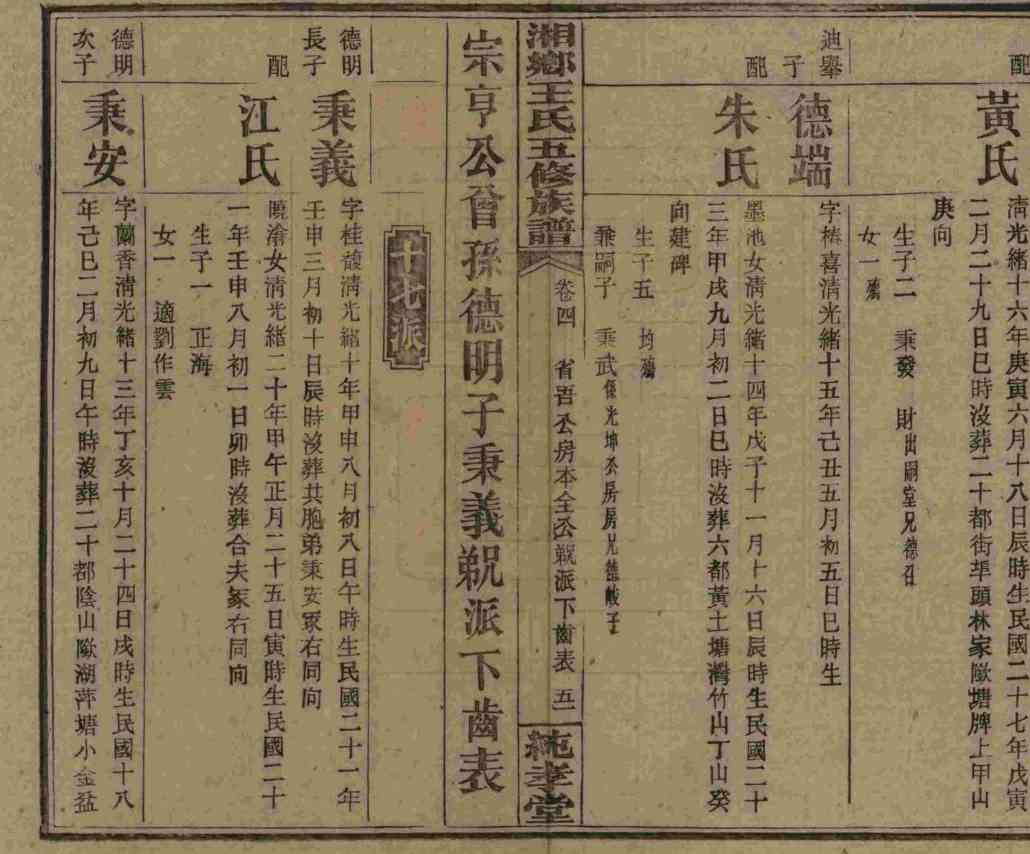 配
黃氏
清光緒十六年庚寅六月十八日辰時生民國二十七年戊寅
二月二十九日巳時沒葬二十都街埠頭林家歐塘牌上甲山
庚向
生子二 秉發 財出嗣堂兄德召
女一殤
迪舉
子
德端
字椿喜清光緒十五年己丑五月初五日巳時生
配
朱氏
墨池女清光緒十四年戊子十一月十六日辰時生民國二十
三年甲戌九月初二日巳時沒葬六都黃土塘灣竹山丁山癸
向建碑
生子五 均殤
兼嗣子 秉武係光坤公房房兄德 子
湘鄉王氏五修族譜
卷四 省吾公房本全公 派下齒表 五一
純孝堂
宗亨公曾孫德明子秉義 派下齒表
十九派
德明
長子
秉義
字桂馥清光緒十年甲申八月初八日午時生民國二十一年
壬申三月初十日辰時沒葬共胞弟秉安冢右同向
配
江氏
曉滄女清光緒二十年甲午正月二十五日寅時生民國二十
一年壬申八月初一日卯時沒葬合夫冢右同向
生子一 正海
女一 適劉作雲
德明
次子
秉安
字蘭香清光緒十三年丁亥十月二十四日戌時生民國十八
年己巳二月初九日午時沒葬二十都陰山歐湖萍塘小金盆